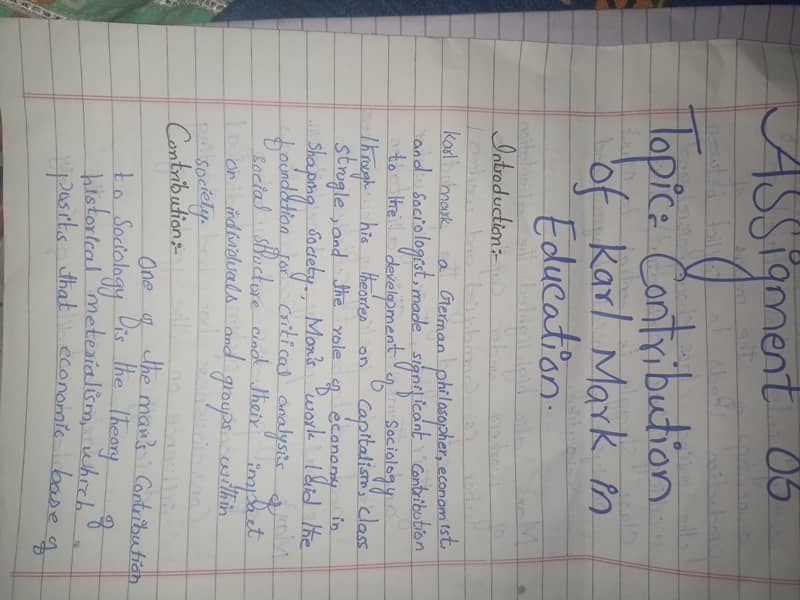 ASSigment 06
Topic:- Contribution
of Karl Mark in
Education.
Introduction:-
Karl mark a German philosopher, economist
and sociologist, made significant contribution
to the development of sociology
through his theores on capitalism, class
strogle, and the role of economy in
shaping society., Man's work laid the
foundation for critical analysis of
social structure and their impact
on individuals and groups within
society.
Contribution:-
One of the man's contribution
to Sociology is the theory of
historical meterialism, which
posits that economic base of